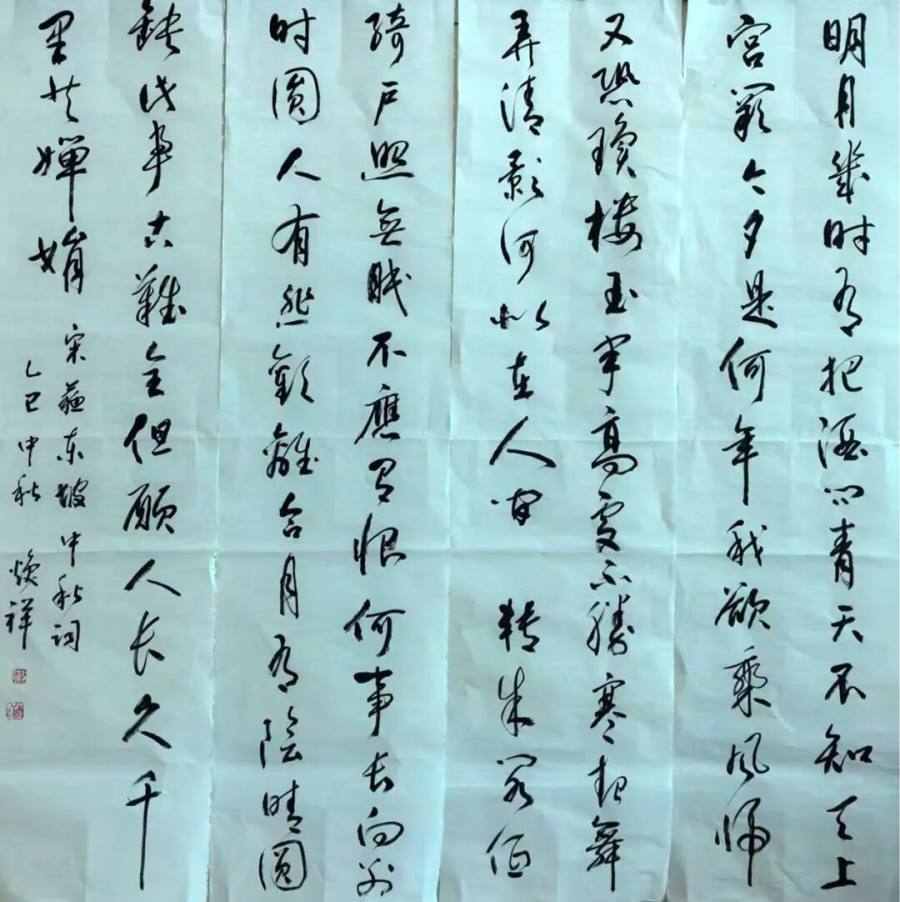 明月幾时有把酒问青天不知天上
宫阙今夕是何年我欲乘风归
又恐瓊楼玉宇高處不勝寒起舞
弄清影何似在人间 轉朱阁低
綺户照無眠不應有恨何事长向别
时圓人有悲歡離合月有陰晴圓
缺此事古難全但願人长久千
里共嬋娟
宋蘇东坡中秋词
乙巳中秋 焕祥